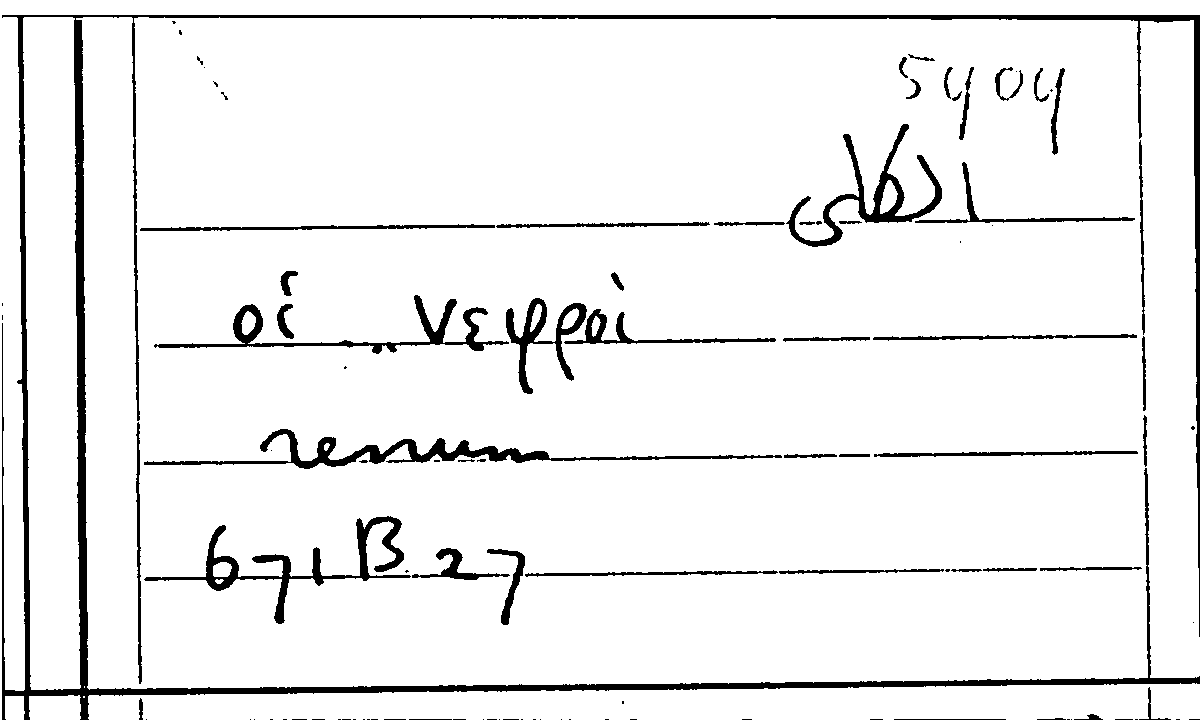 5404
οἱ ... νεφροὶ
renum
671 B 27